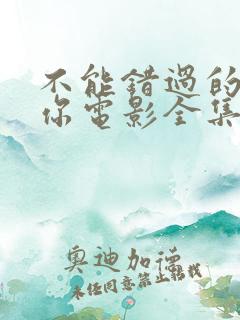 不能错过的
你电影全集
奥迪加德
未经同意禁止转载